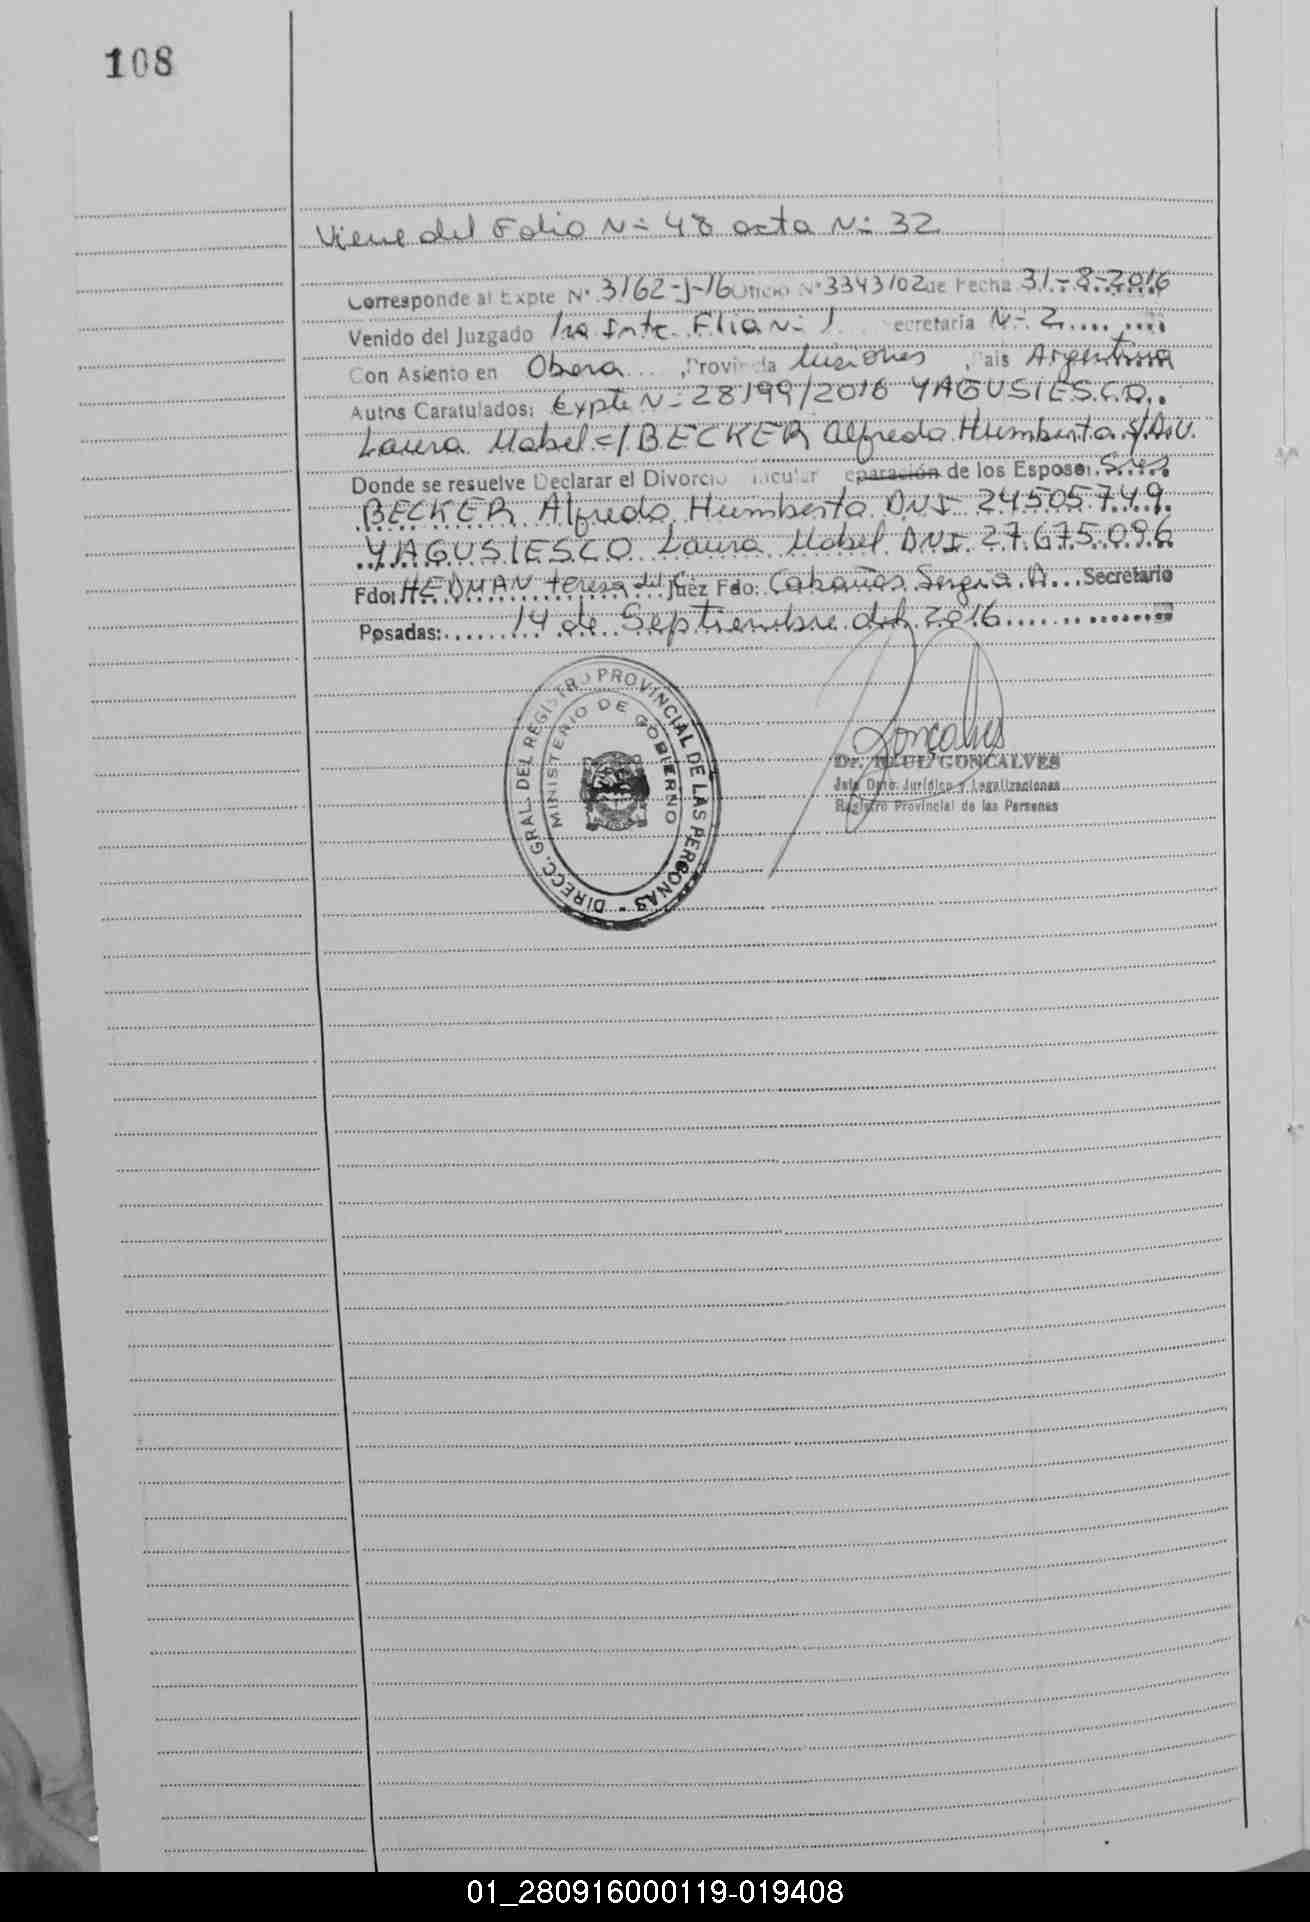 108
Viene del Folio N= 48 acta N= 32
Corresponde al Expte N° 3162-J-16 Oficio N° 3343/02 de Fecha 31-8-2016
Venido del Juzgado 1ra Inta. Flia N- 1 ecretaria N- 2
Con Asiento en Obera , Provincia Misiones , Pais Argentina
Autos Caratulados: Expte N- 28199/2016 YAGUSIESCO
Laura Mabel c/ BECKER Alfredo Humberto s/Div.
Donde se resuelve Declarar el Divorcio incular eparación de los Esposos: Sres
BECKER Alfredo Humberto DNI 24.505.749
YAGUSIESCO Laura Mabel DNI 27.675.096
Fdo: HEDMAN Teresa del C Juez Fdo: Cabañas Sergio A... Secretario
Posadas: 14 de Septiembre del 2016
DIRECC. GRAL. DEL REGISTRO PROVINCIAL DE LAS PERSONAS -
MINISTERIO DE GOBIERNO
Goncalves
Dr. RAUL GONCALVES
Jefe Dpto. Jurídico y Legalizaciones
Registro Provincial de las Personas
01_280916000119-019408